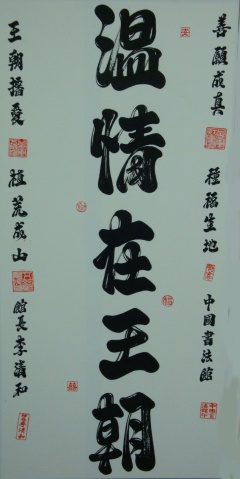 善願成真 種福生地 中國書法館
溫情在王朝
王朝播愛 植荒成山 館長李清和